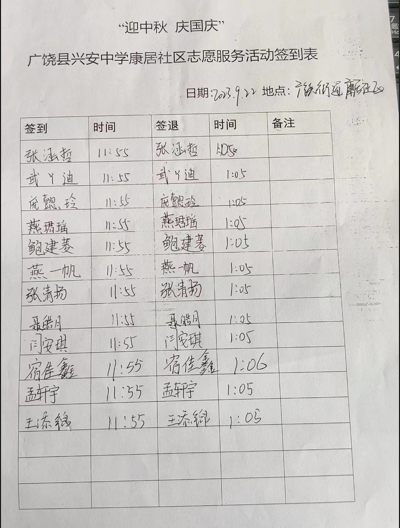 “迎中秋 庆国庆”
广饶县兴安中学康居社区志愿服务活动签到表
日期:2023.9.22 地点:
签到 时间 签退 时间 备注
张涵哲 11:55 张涵哲
武丫迪 11:55 武丫迪 1:05
11:55 1:05
燕珺瑶 11:55 燕珺瑶 1:05
鲍建菱 11:55 鲍建菱 1:05
燕一帆 11:55 燕一帆 1:05
张清扬 11:55 张清扬 1:05
聂皓月 11:55 聂皓月 1:05
闫安琪 11:55 闫安琪 1:05
宿佳鑫 11:55 宿佳鑫 1:06
孟轩宇 11:55 孟轩宇 1:05
王添 11:55 王添 1:05